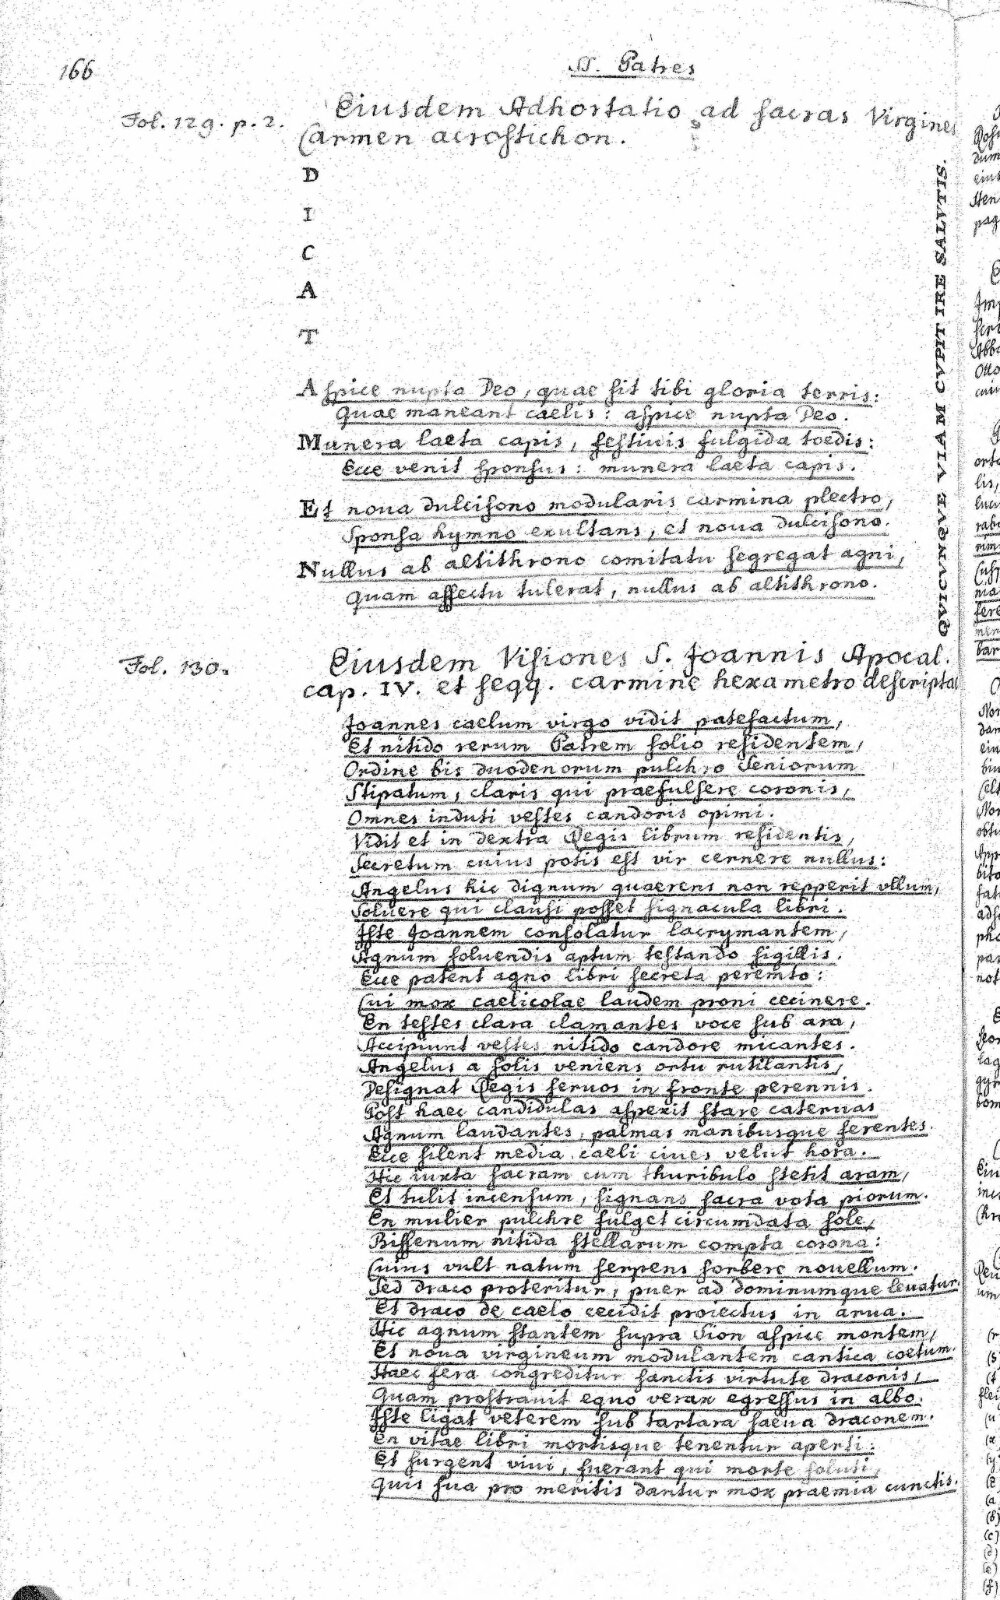 166
SS. Patres
Fol. 129. p. 2.
Eiusdem Adhortatio ad sacras Virgines
Carmen acrostichon.
D
I
C
A
T
Aspice nupta Deo, quae sit tibi gloria terris:
Quae maneant caelis: aspice nupta Deo.
Munera laeta capis, festiuis fulgida toedis:
Ecce venit sponsus: munera laeta capis.
Et noua dulcisono modularis carmina plectro,
Sponsa hymno exultans, et noua dulcisono.
Nullus ab altithrono comitatu segregat agni,
Quam affectu tulerat, nullus ab altithrono.
QVICVNQVE VIAM CVPIT IRE SALVTIS.
Fol. 130.
Eiusdem Visiones S. Joannis Apocal.
cap. IV. et seqq. carmine hexametro descriptae
Joannes caelum virgo vidit patefactum,
Et nitido rerum Patrem solio residentem,
Ordine bis duodenorum pulchro Seniorum
Stipatum, claris qui praefulsere coronis,
Omnes induti vestes candoris opimi.
Vidit et in dextra Regis librum residentis,
Secretum cuius potis est vir cernere nullus:
Angelus hic dignum quaerens non repperit vllum,
Soluere qui clausi posset signacula libri.
Iste Joannem consolatur lacrymantem,
Agnum soluendis aptum testando sigillis.
Ecce patent agno libri secreta peremto:
Cui mox caelicolae laudem proni cecinere.
En testes clara clamantes voce sub ara,
Accipiunt vestes nitido candore micantes.
Angelus a solis veniens ortu rutilantis,
Designat Regis seruos in fronte perennis.
Post haec candidulas aspexit stare cateruas
Agnum laudantes, palmas manibusque ferentes.
Ecce silent media caeli ciues velut hora.
Hic iuxta sacram cum thuribulo stetit aram,
Et tulit incensum, signans sacra vota piorum.
En mulier pulchre fulget circumdata sole,
Bissenum nitida stellarum compta corona:
Cuius vult natum serpens sorbere nouellum.
Sed draco proteritur, puer ad dominumque leuatur.
Et draco de caelo cecidit proiectus in arua.
Hic agnum stantem supra Sion aspice montem,
Et noua virgineum modulantem cantica coetum.
Haec fera congreditur sanctis virtute draconis,
Quam prostrauit equo verax egressus in albo.
Iste ligat veterem sub tartara saeua draconem.
En vitae libri mortisque tenentur aperti:
Et surgent viui, fuerant qui morte soluti,
Quis sua pro meritis dantur mox praemia cunctis.